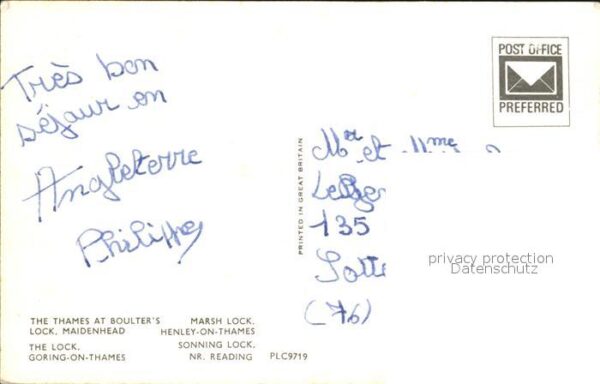 Très bon
séjour en
Angleterre
Philippe
POST OFFICE
PREFERRED
Mr et Mme
135
Sotte
(76)
PRINTED IN GREAT BRITAIN
privacy protection
Datenschutz
THE THAMES AT BOULTER'S
LOCK, MAIDENHEAD
THE LOCK,
GORING-ON-THAMES
MARSH LOCK,
HENLEY-ON-THAMES
SONNING LOCK,
NR. READING
PLC9719